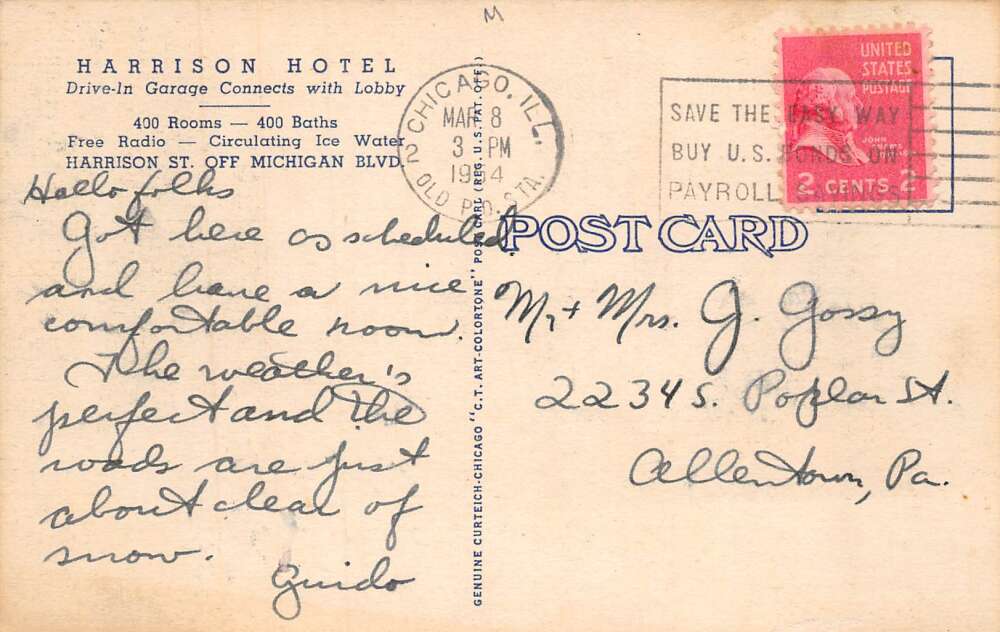 M
HARRISON HOTEL
Drive-In Garage Connects with Lobby
400 Rooms — 400 Baths
Free Radio — Circulating Ice Water
HARRISON ST. OFF MICHIGAN BLVD.
Hello folks
Got here as scheduled
and have a nice
comfortable room.
The weather's
perfect and the
roads are just
about clear of
snow.
Guido
GENUINE CURTEICH-CHICAGO "C.T. ART-COLORTONE" POST CARD (REG. U.S. PAT. OFF.)
CHICAGO, ILL.
MAR 8
3 PM
1954
2 OLD P.O. STA.
SAVE THE EASY WAY
BUY U.S. BONDS ON
PAYROLL SAVINGS
UNITED
STATES
POSTAGE
JOHN
ADAMS
2 CENTS 2
POST CARD
Mr + Mrs. J. Gossy
2234 S. Poplar St.
Allentown, Pa.